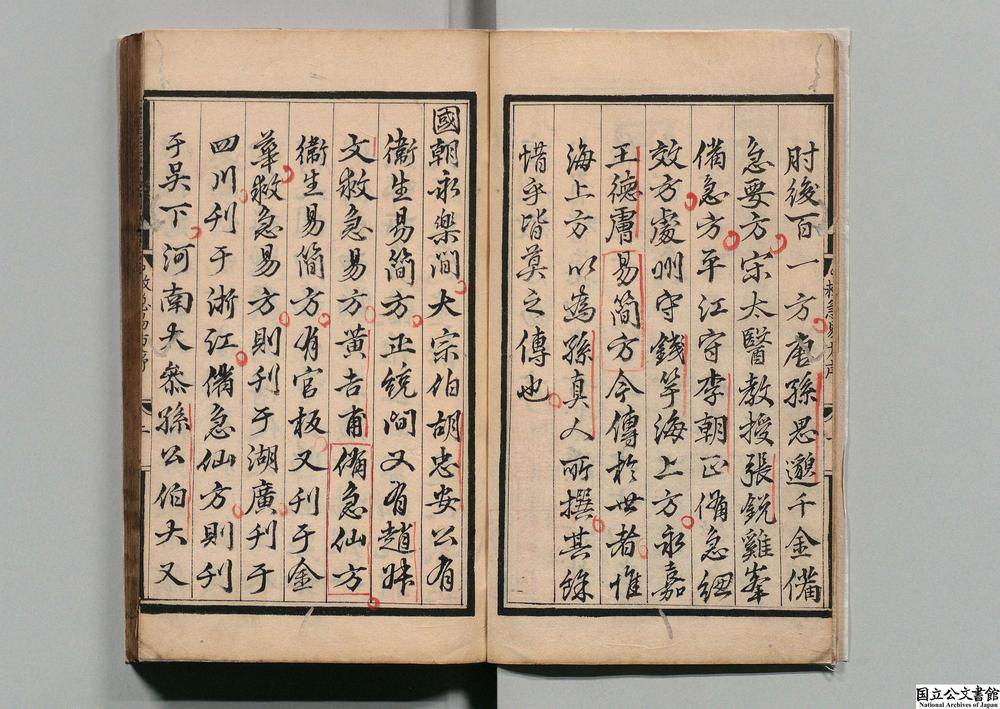 肘後百一方唐孫思邈千金備
急要方宋太醫教授張銳雞峯
備急方平江守李朝正備急經
效方處州守錢竽海上方永嘉
王德膚易簡方今傳於世者惟
海上方以為孫真人所撰其餘
惜乎皆莫之傳也
國朝永樂間大宗伯胡忠安公有
衞生易簡方正統間又有趙
文救急易方黃吉甫備急仙方
衞生易簡方有官板又刊于金
華救急易方則刊于湖廣刊于
四川刊于浙江備急仙方則刊
于吳下河南大叅孫公伯大又
國立公文書館
National Archives of Japan